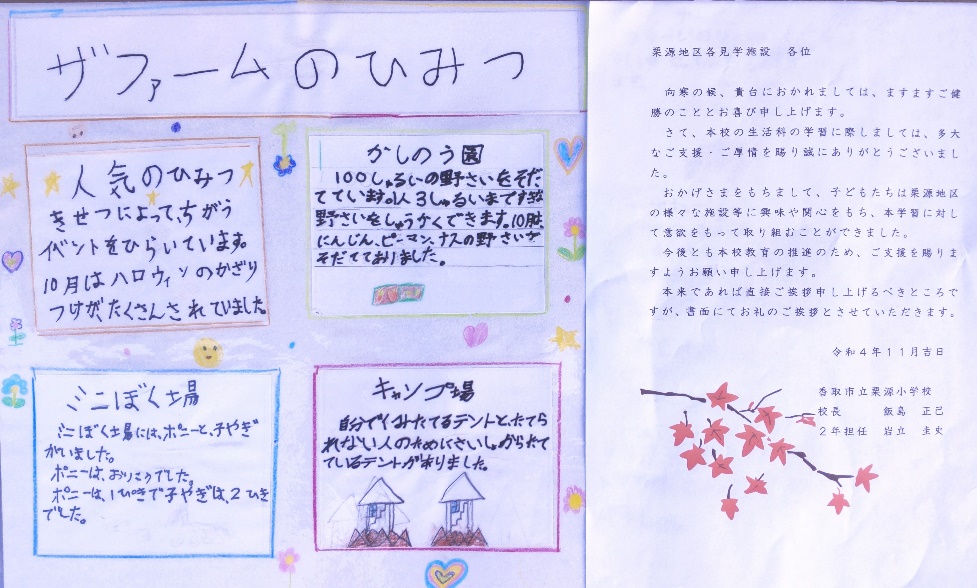 ザファームのひみつ
人気のひみつ
きせつによって、ちがう
イベントをひらいています。
10月はハロウィンのかざり
つけが、たくさんされていました。
かしのう園
100しゅるいの野さいをそだ
てています。1人3しゅるいまですきな
野さいをしゅうかくできます。10月は
にんじん、ピーマン、ナスの野さいが
そだてておりました。
ミニぼく場
ミニぼく場には、ポニーと、子やぎ
がいました。
ポニーは、おりこうでした。
ポニーは、1ぴきで子やぎは、2ひき
でした。
キャンプ場
自分でくみたてるテントと、たてら
れない人のためにさいしょからたて
ているテントがありました。
栗源地区各見学施設 各位
向寒の候、貴台におかれましては、ますますご健
勝のこととお喜び申し上げます。
さて、本校の生活科の学習に際しましては、多大
なご支援・ご厚情を賜り誠にありがとうございまし
た。
おかげさまをもちまして、子どもたちは栗源地区
の様々な施設等に興味や関心をもち、本学習に対し
て意欲をもって取り組むことができました。
今後とも本校教育の推進のため、ご支援を賜りま
すようお願い申し上げます。
本来であれば直接ご挨拶申し上げるべきところで
すが、書面にてお礼のご挨拶とさせていただきます。
令和4年11月吉日
香取市立栗源小学校
校長 飯島 正己
2年担任 岩立 圭史